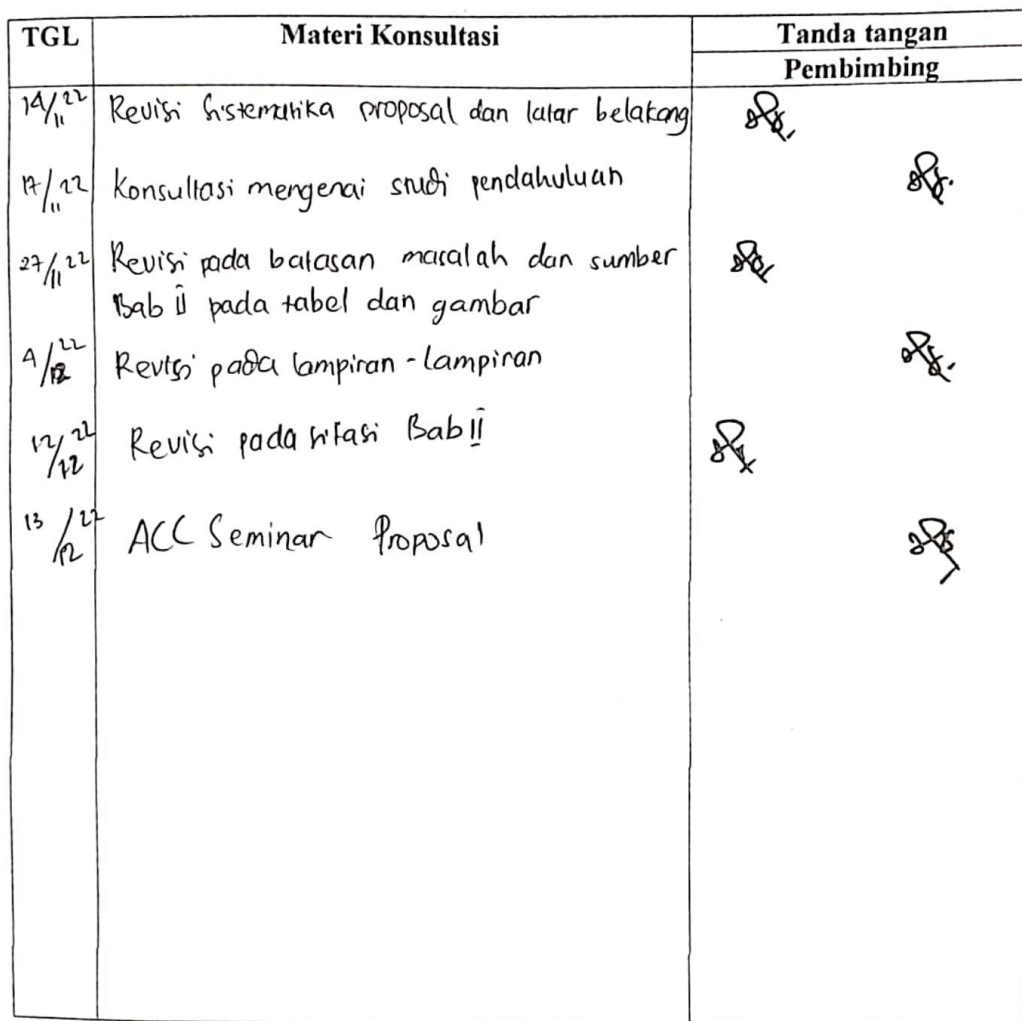 TGL Materi Konsultasi Tanda tangan
Pembimbing
14/11 22 Revisi sistematika proposal dan latar belakang
17/11 22 Konsultasi mengenai studi pendahuluan
27/11 22 Revisi pada batasan masalah dan sumber
Bab II pada tabel dan gambar
4/12 22 Revisi pada lampiran-lampiran
12/12 22 Revisi pada sitasi Bab II
13/12 22 ACC Seminar Proposal